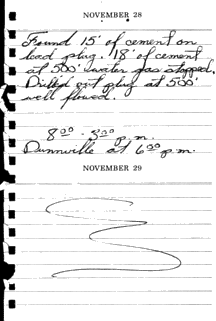 NOVEMBER 28
Found 15' of cement on
lead plug. 18' of cement
at 500' water gas stopped.
Drilled out plug at 500'
well flowed.
8 00 - 5 00 p.m.
Dunnville at 6 00 p.m.
NOVEMBER 29